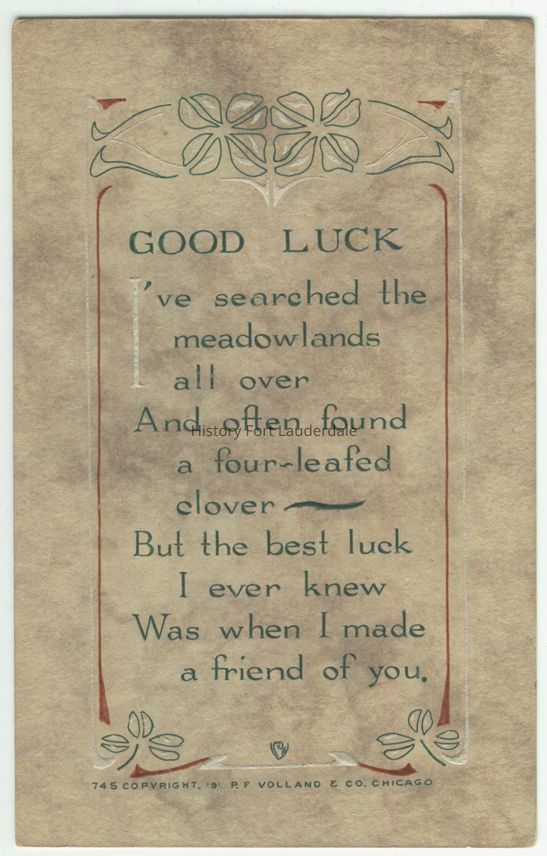 GOOD LUCK
I've searched the
meadowlands
all over
And often found
History Fort Lauderdale
a four-leafed
clover —
But the best luck
I ever knew
Was when I made
a friend of you.
745 COPYRIGHT, '9' P. F VOLLAND & CO. CHICAGO